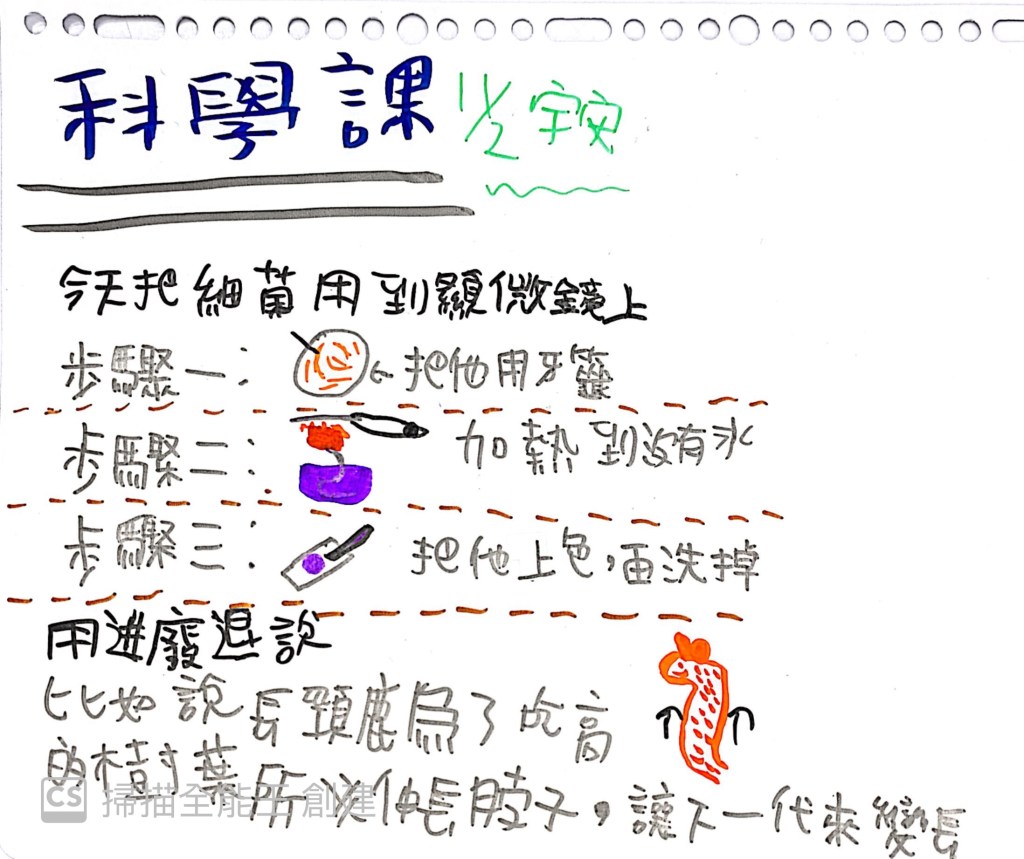 科學課 11/2 宇安
今天把細菌用到顯微鏡上
步驟一：把他用牙籤
步驟二：加熱到沒有水
步驟三：把他上色，再洗掉
用進廢退說
比如說長頸鹿為了吃高
的樹葉所以伸長脖子，讓下一代來變長
CS 掃描全能王 創建